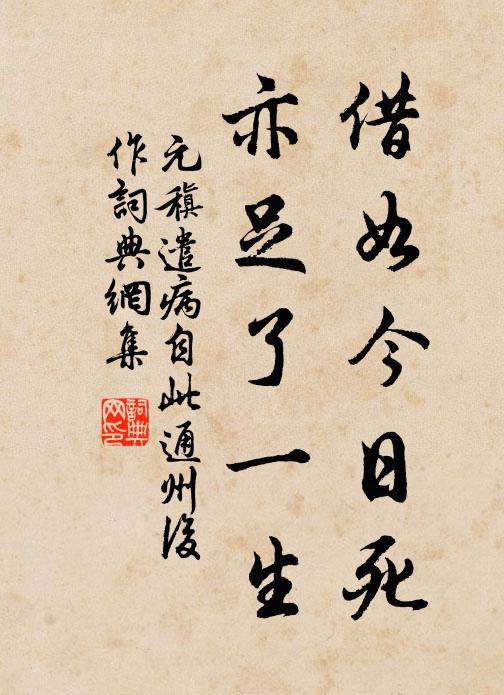 借如今日死
亦足了一生
元稹遣病自此通州後
作詞典網集
詞典网印